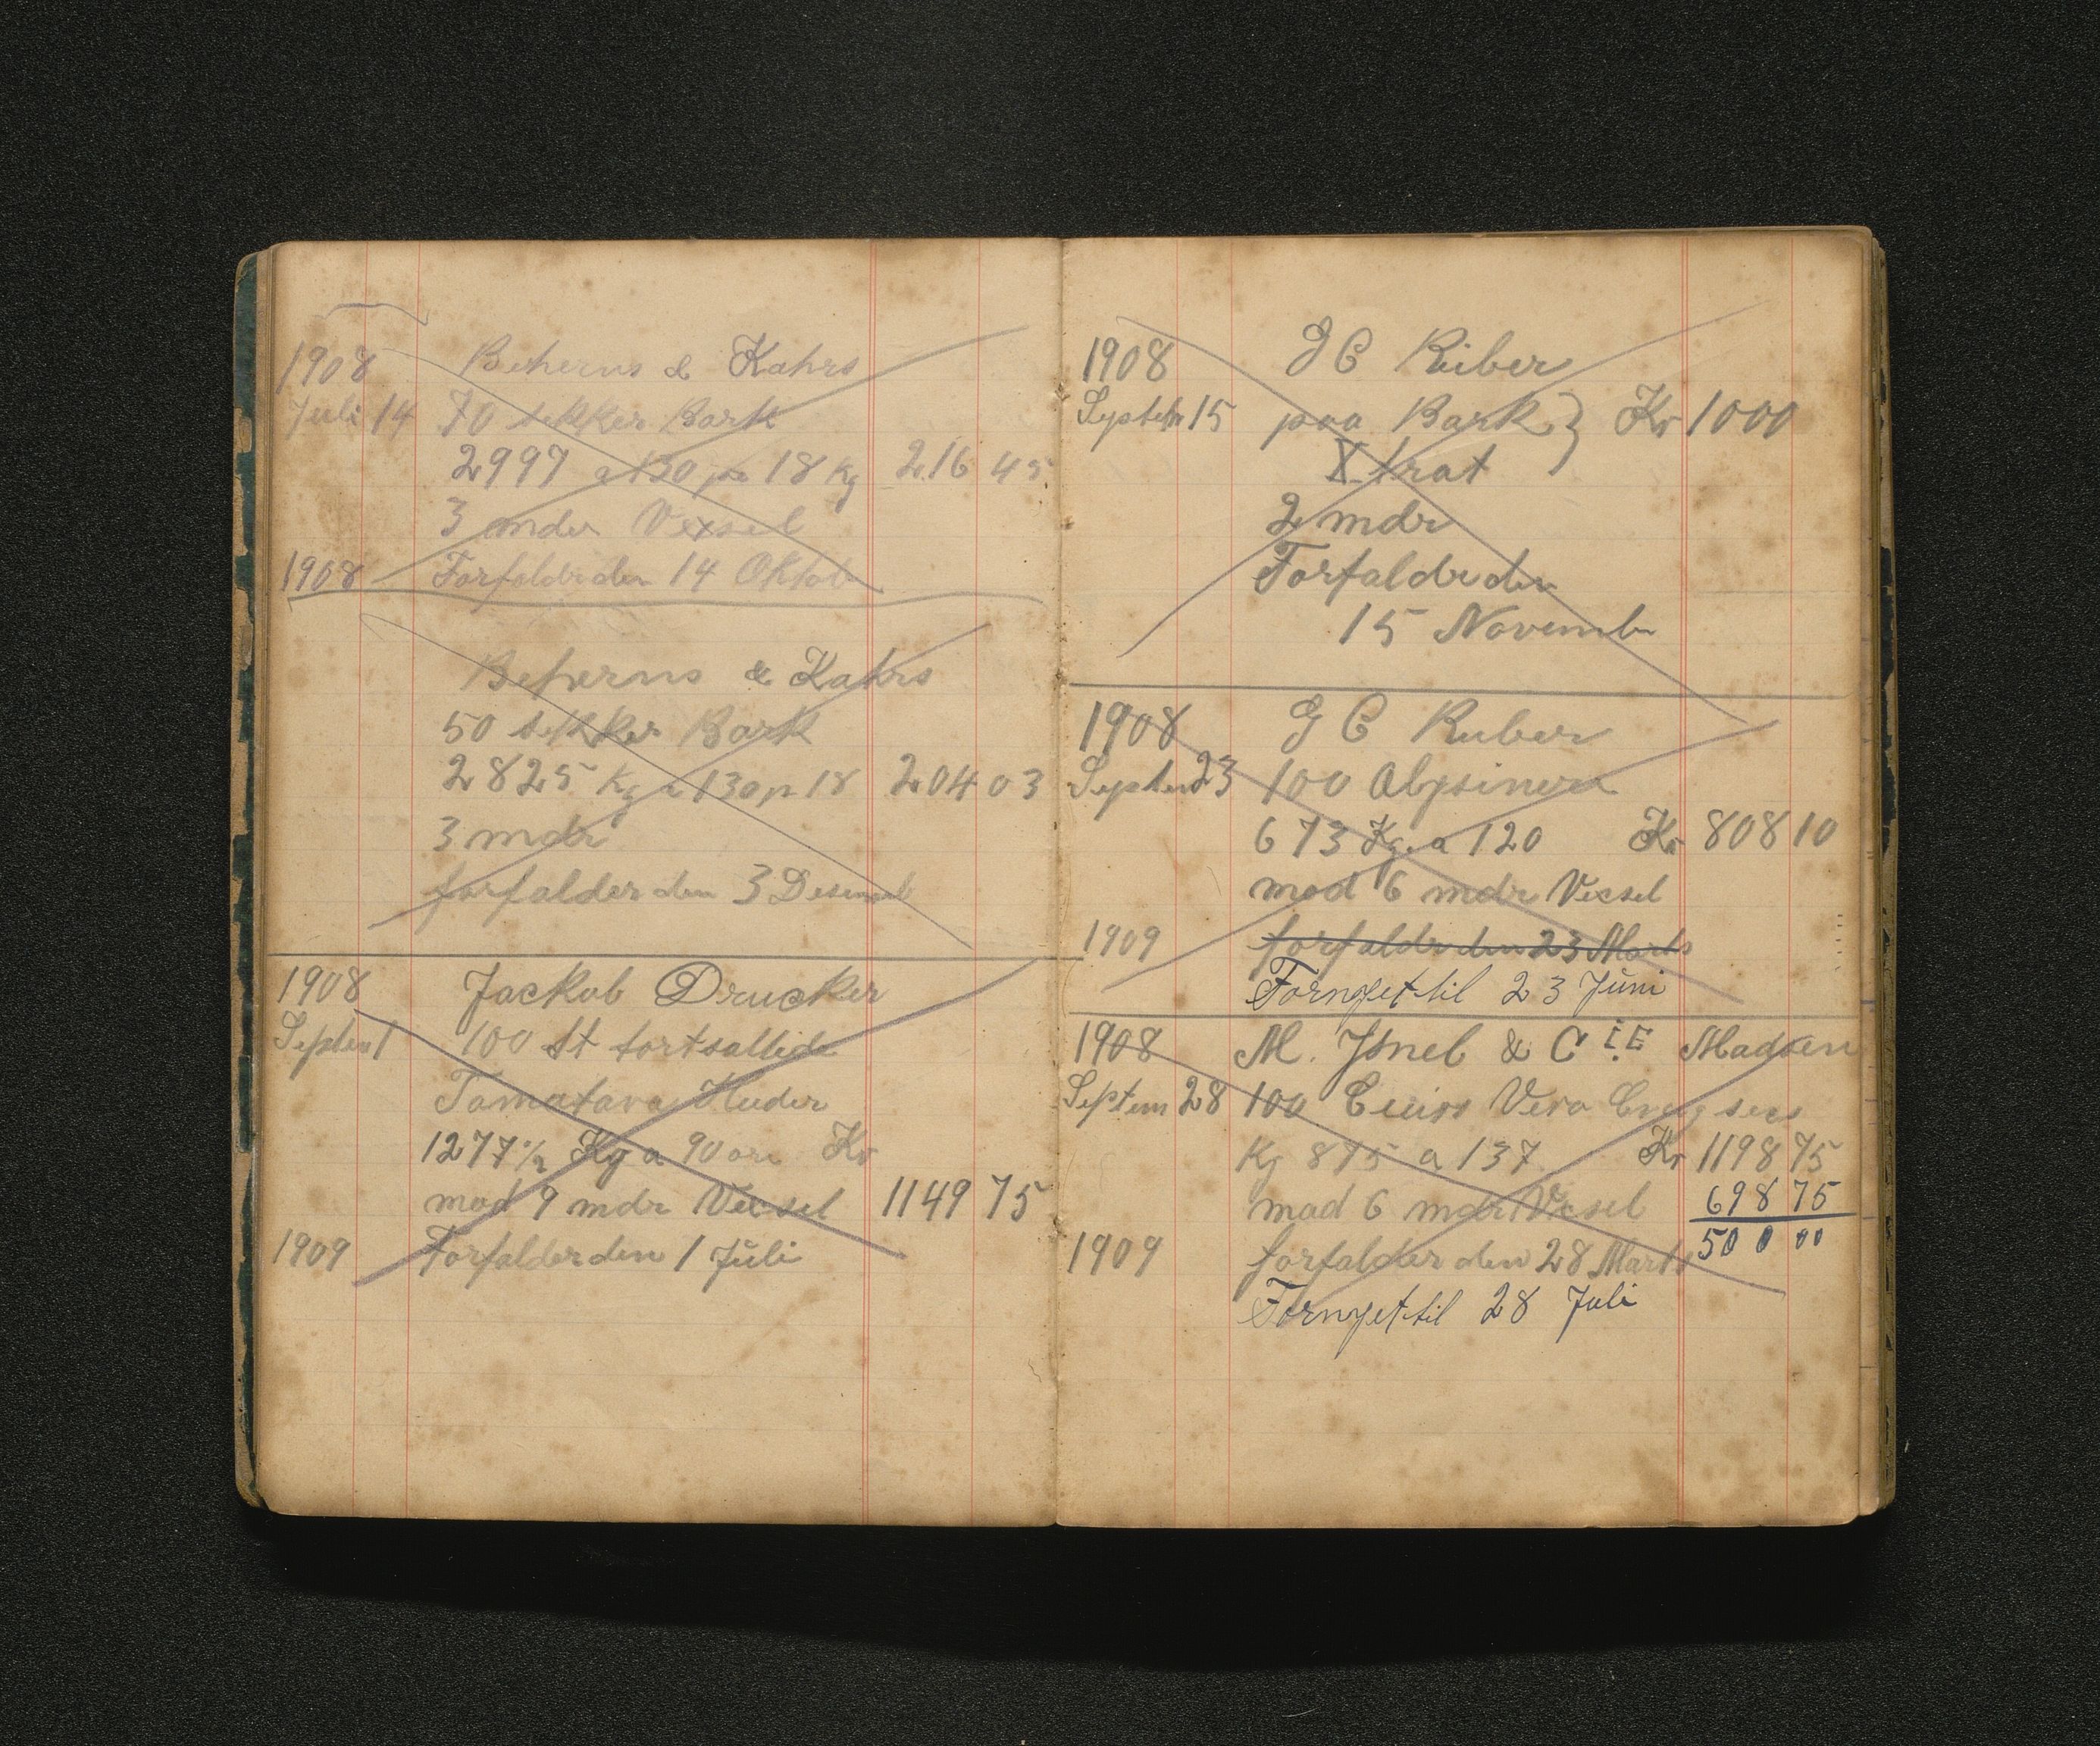 1908 Beherns & Kahrs
Juli 14 70 sekker Bark
2997 a 130 pr 18 Kg 216 45
3 mder Vexsel
1908 Forfaldr den 14 Oktob
Beherns & Kahrs
50 sekker Bark
2825 Kg a 130 pr 18 204 03
3 mdr
forfalder den 3 Desemb
1908 Jackob Drucker
Septem 1 100 St tortsaltede
Tamatava Huder
1277 1/2 Kg a 90 ore Kr
mod 9 mdr Vecsel 1149 75
1909 Forfalder den 1 Juli
1908 G C Riiber
Septeb 15 paa Bark } Kr 1000
Xtrat
2 mdr
Forfaldr den
15 Novemb
1908 G C Ruber
Septem 23 100 Abysiner
673 Kg. a 120 Kr 808 10
mod 6 mdr Vecsel
1909 forfaldr den 23 Marts
Fornyet til 23 Juni
1908 M. Isnel & Cie Madsen
Septem 28 100 Cuirs Vera secs
Kg 875 a 137 Kr 1198 75
mod 6 mdr Vecsel 698 75
1909 forfalder den 28 Marts 500 00
Fornyet til 28 Juli